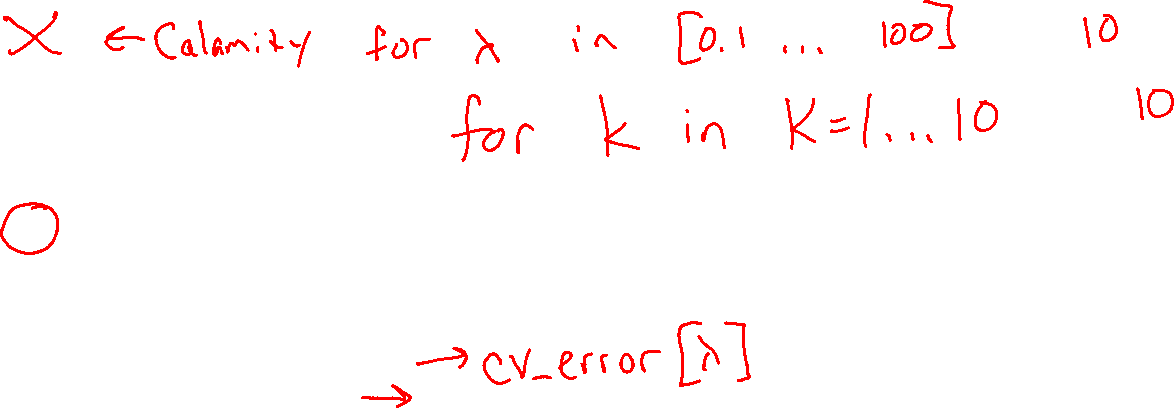 X ← Calamity for λ in [0.1 ... 100] 10
for k in K=1...10 10
O
→ cv_error[λ]
→